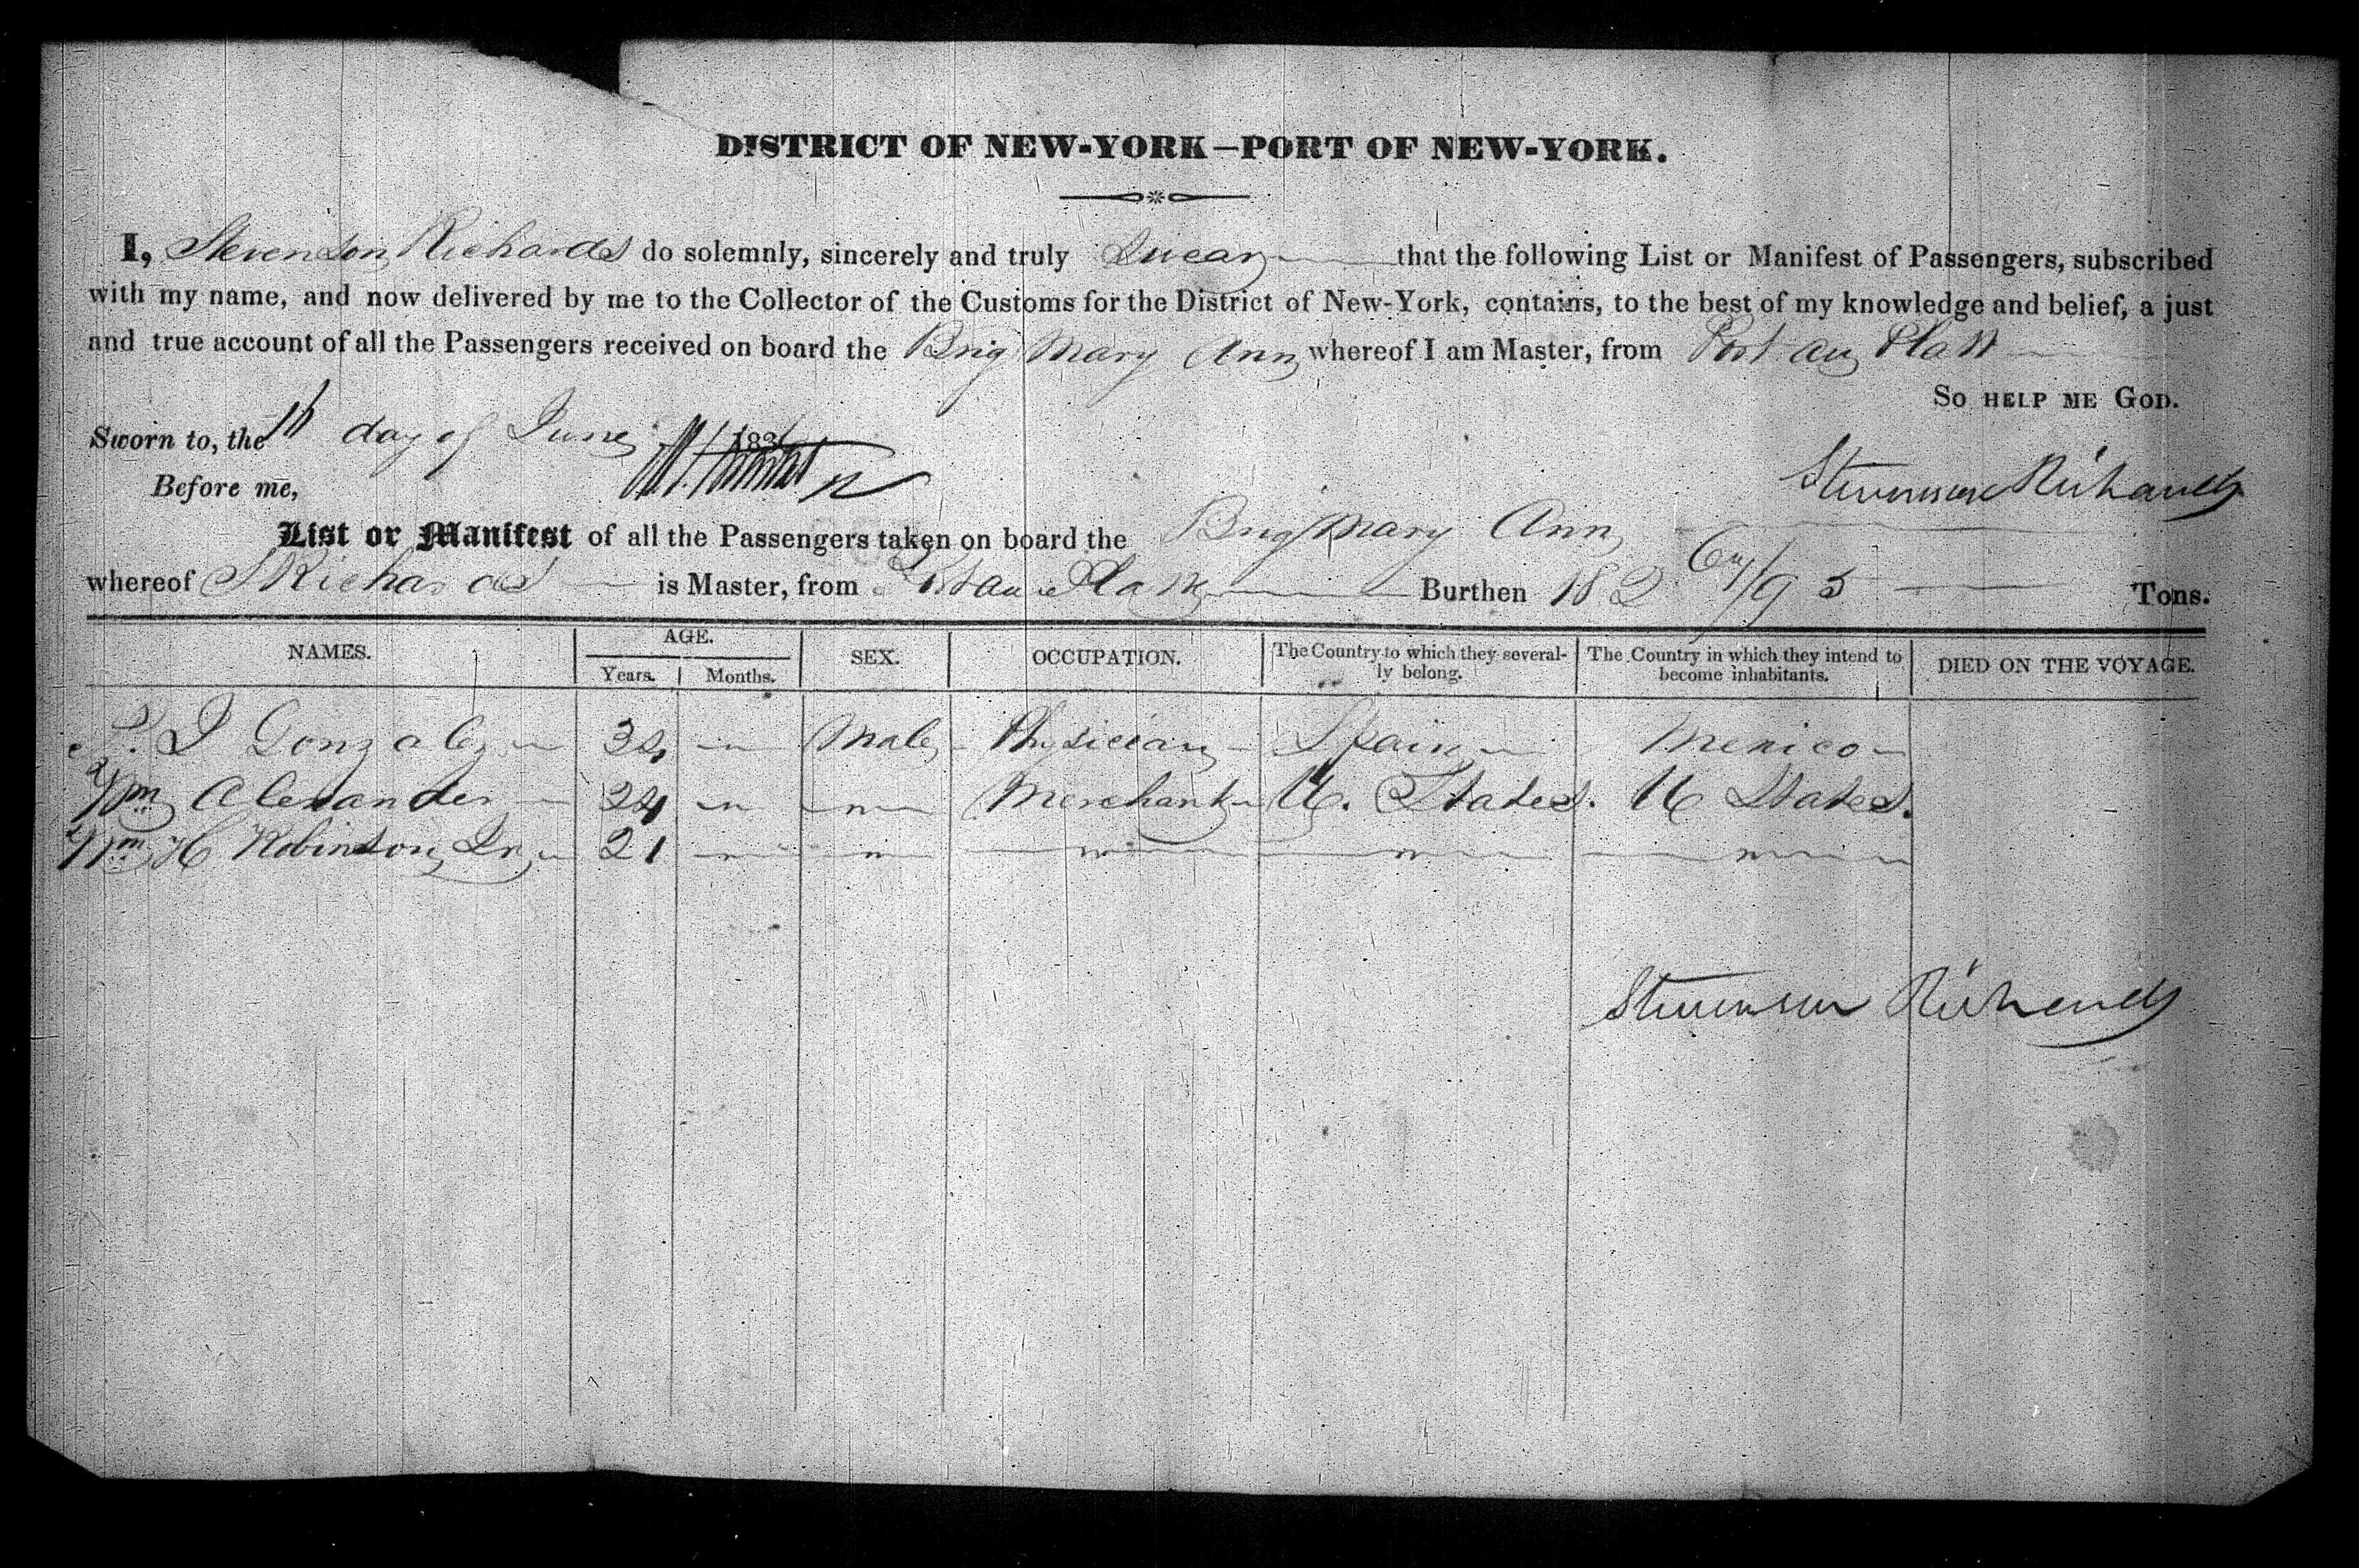 DISTRICT OF NEW-YORK—PORT OF NEW-YORK.
I, Stevenson Richards do solemnly, sincerely and truly Swear that the following List or Manifest of Passengers, subscribed
with my name, and now delivered by me to the Collector of the Customs for the District of New-York, contains, to the best of my knowledge and belief, a just
and true account of all the Passengers received on board the Brig Mary Ann whereof I am Master, from Port au Platt
So HELP ME GOD.
Sworn to, the day of June 183
Stevenson Richards
Before me,
List or Manifest of all the Passengers taken on board the Brig Mary Ann
whereof S Richards is Master, from Port au Platt Burthen 182 /95 Tons.
NAMES. AGE. SEX. OCCUPATION. The Country to which they several- The Country in which they intend to DIED ON THE VOYAGE.
Years. Months. ly belong. become inhabitants.
J Gonzalez 34 " Male Physician Spain Mexico
Wm Alexander 24 " " Merchant U. States. U States.
Wm H Robinson Jr 21 " " " " "
Stevenson Richards